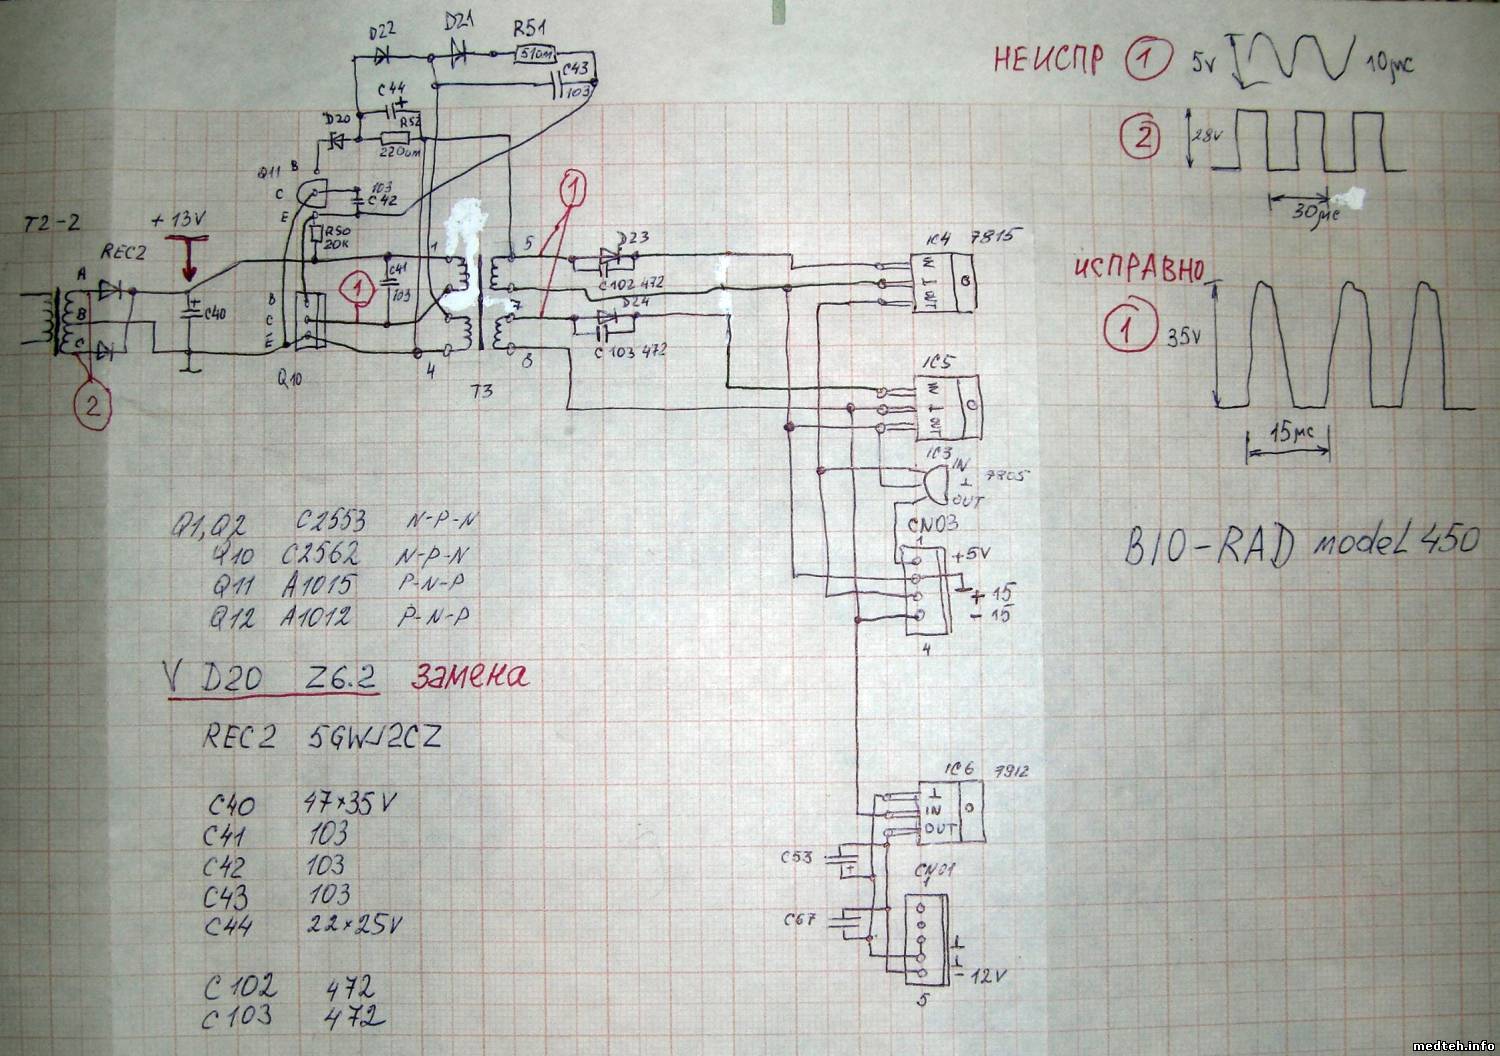 D22
D21
R51
510м
C43
103
C44
+
R52
220м
D20
Q11
B
C
E
103
C42
R50
20K
T2-2
+13V
REC2
A
B
C
+
C40
2
1
C41
103
B
C
E
Q10
1
4
T3
5
7
8
1
D23
C102 472
D24
C103 472
IC4 7815
IN
⊥
OUT
IC5
IN
⊥
OUT
IC3
IN
⊥
OUT
7805
CN03
1
+5V
+15
-15
4
IC6 7912
⊥
IN
OUT
C53
+
CN01
1
C67
⊥
⊥
-12V
5
НЕИСПР 1 5V 10μс
2 28V
30μс
ИСПРАВНО
1 35V
15μс
BIO-RAD model 450
Q1,Q2 C2553 N-P-N
Q10 C2562 N-P-N
Q11 A1015 P-N-P
Q12 A1012 P-N-P
V D20 Z6.2 замена
REC2 5GWJ2CZ
C40 47×35V
C41 103
C42 103
C43 103
C44 22×25V
C102 472
C103 472
medteh.info